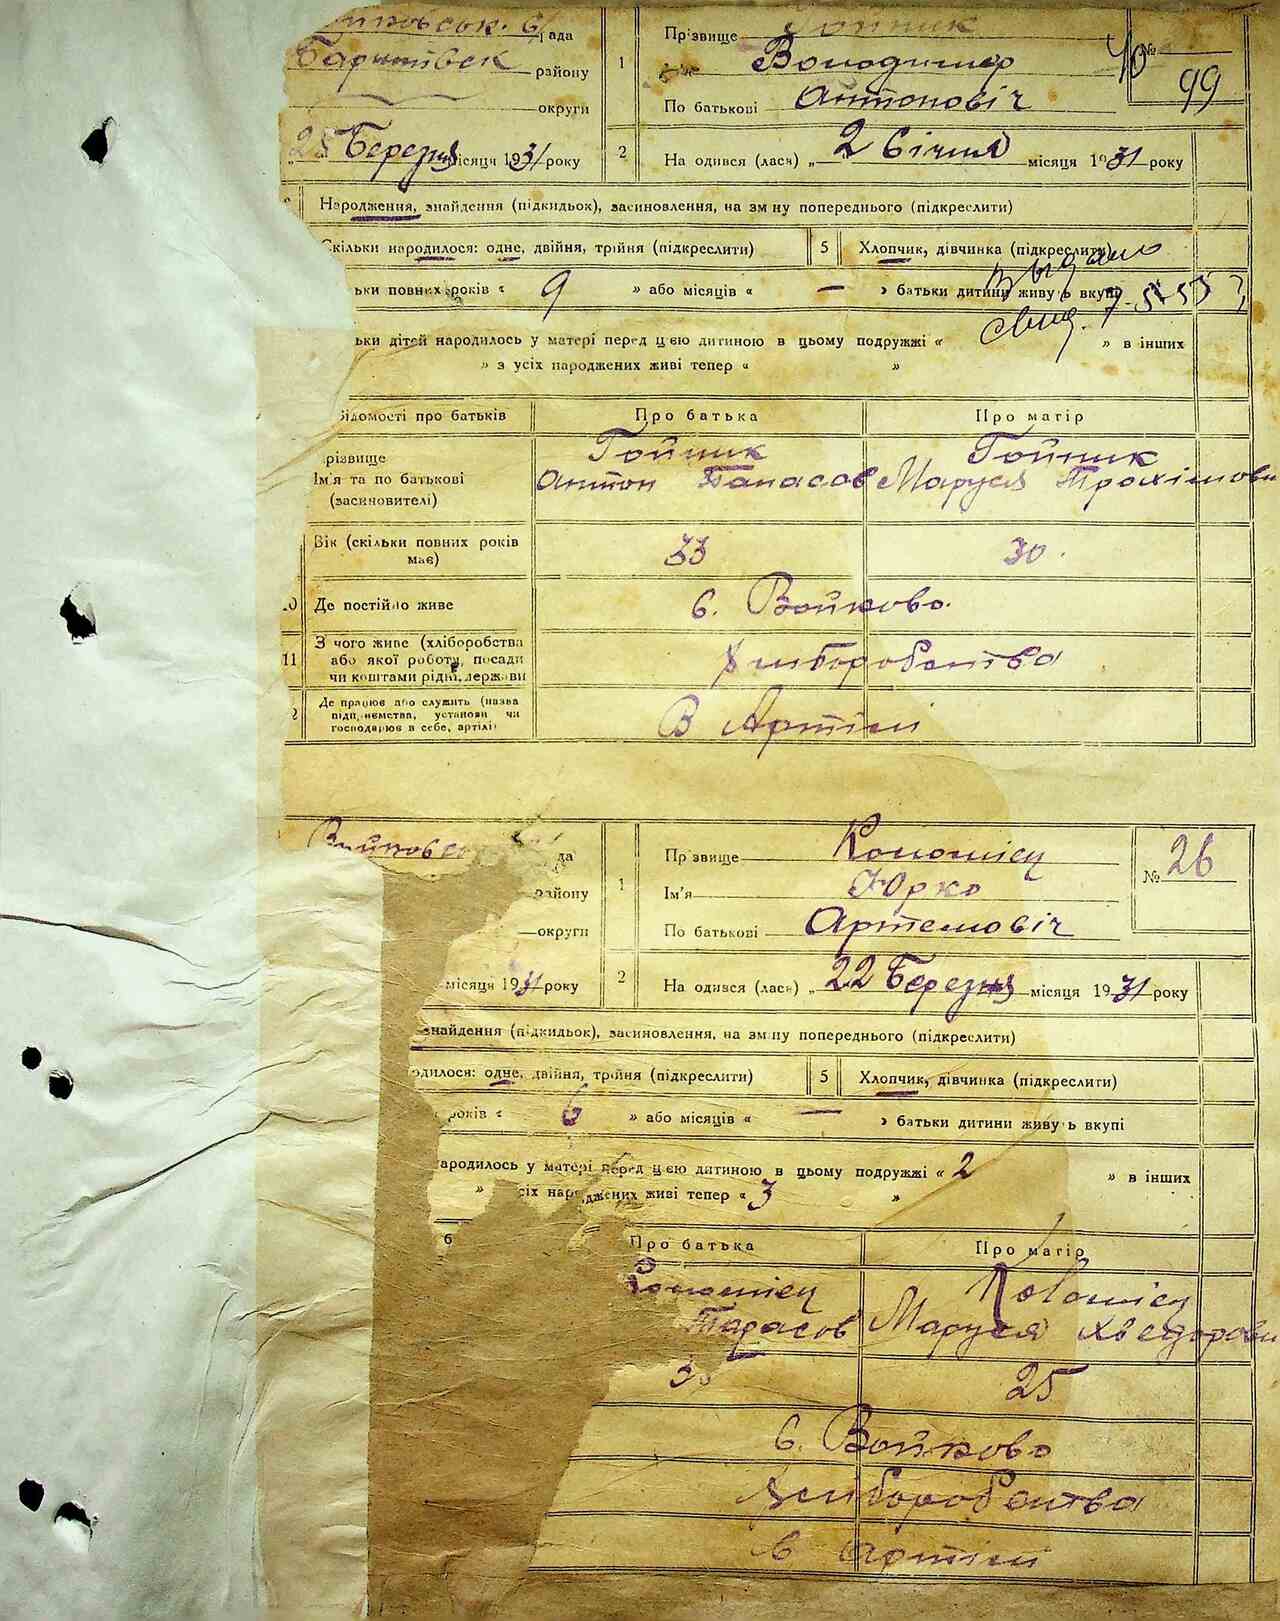 рада
Баришівськ району
округи
25 Березня місяця 1931 року
1
Прізвище Гойник
Володимер
По батькові Антоновіч
№
99
2
На одився (лася) „ 2 Січня місяця 1931 року
Народження, знайдення (підкидьок), засиновлення, на зм ну попереднього (підкреслити)
Скільки народилося: одне, двійня, трійня (підкреслити)
5
Хлопчик, дівчинка (підкреслити)
ьки повних років « 9 » або місяців « — » батьки дитини живуть вкупі
ьки дітей народилось у матері перед цією дитиною в цьому подружжі « » в інших
» з усіх народжених живі тепер « »
відомості про батьків
Про батька
Про матір
різвище
Ім'я та по батькові
(засиновителі)
Гойник
Антон Панасов
Гойник
Маруся Трохімовн
Вік (скільки повних років має)
33
30.
10
Де постійно живе
с. Войково.
11
З чого живе (хліборобства
або якої роботи, посади
чи коштами рідні, держави
Хліборобства
2
Де працює або служить (назва
підприємства, установи чи
господарює в себе, артілі)
В Артілі
да
району
округи
місяця 1931 року
1
Пр звище Коломієц
Ім'я Юрко
По батькові Артемовіч
№ 26
2
На одився (лася) „ 22 Березня місяця 1931 року
знайдення (підкидьок), засиновлення, на зм ну попереднього (підкреслити)
одилося: одне, двійня, трійня (підкреслити)
5
Хлопчик, дівчинка (підкреслити)
років « 6 » або місяців « — » батьки дитини живуть вкупі
ародилось у матері перед цією дитиною в цьому подружжі « 2 » в інших
» усіх народжених живі тепер « 3 »
Про батька
Про матір
Коломієц
Тарасов
Коломієц
Маруся Хведоровн
25
с. Войково
Хліборобства
в артілі